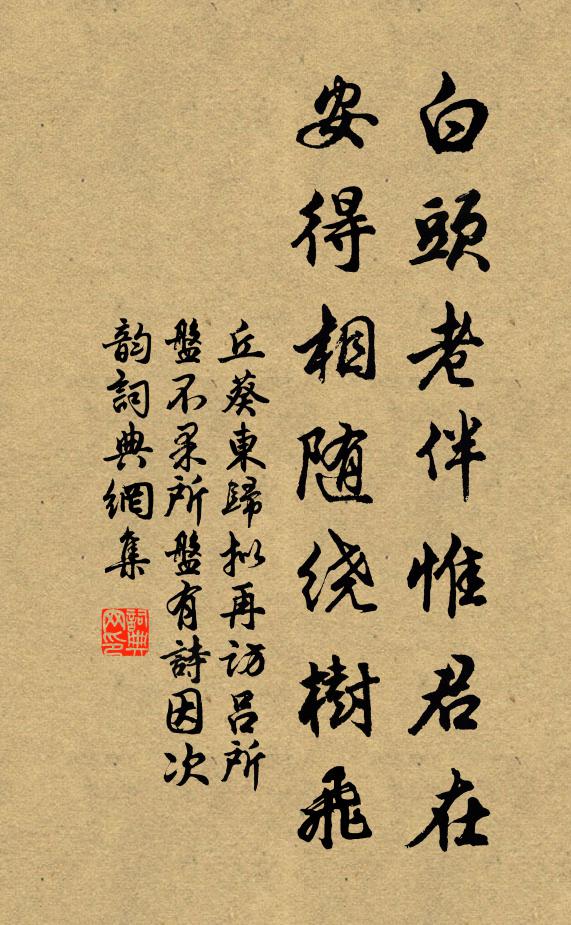 白頭老伴惟君在
安得相随绕樹飛
丘葵東歸拟再访吕所
盤不果所盤有詩因次
韵詞典網集
詞典网印